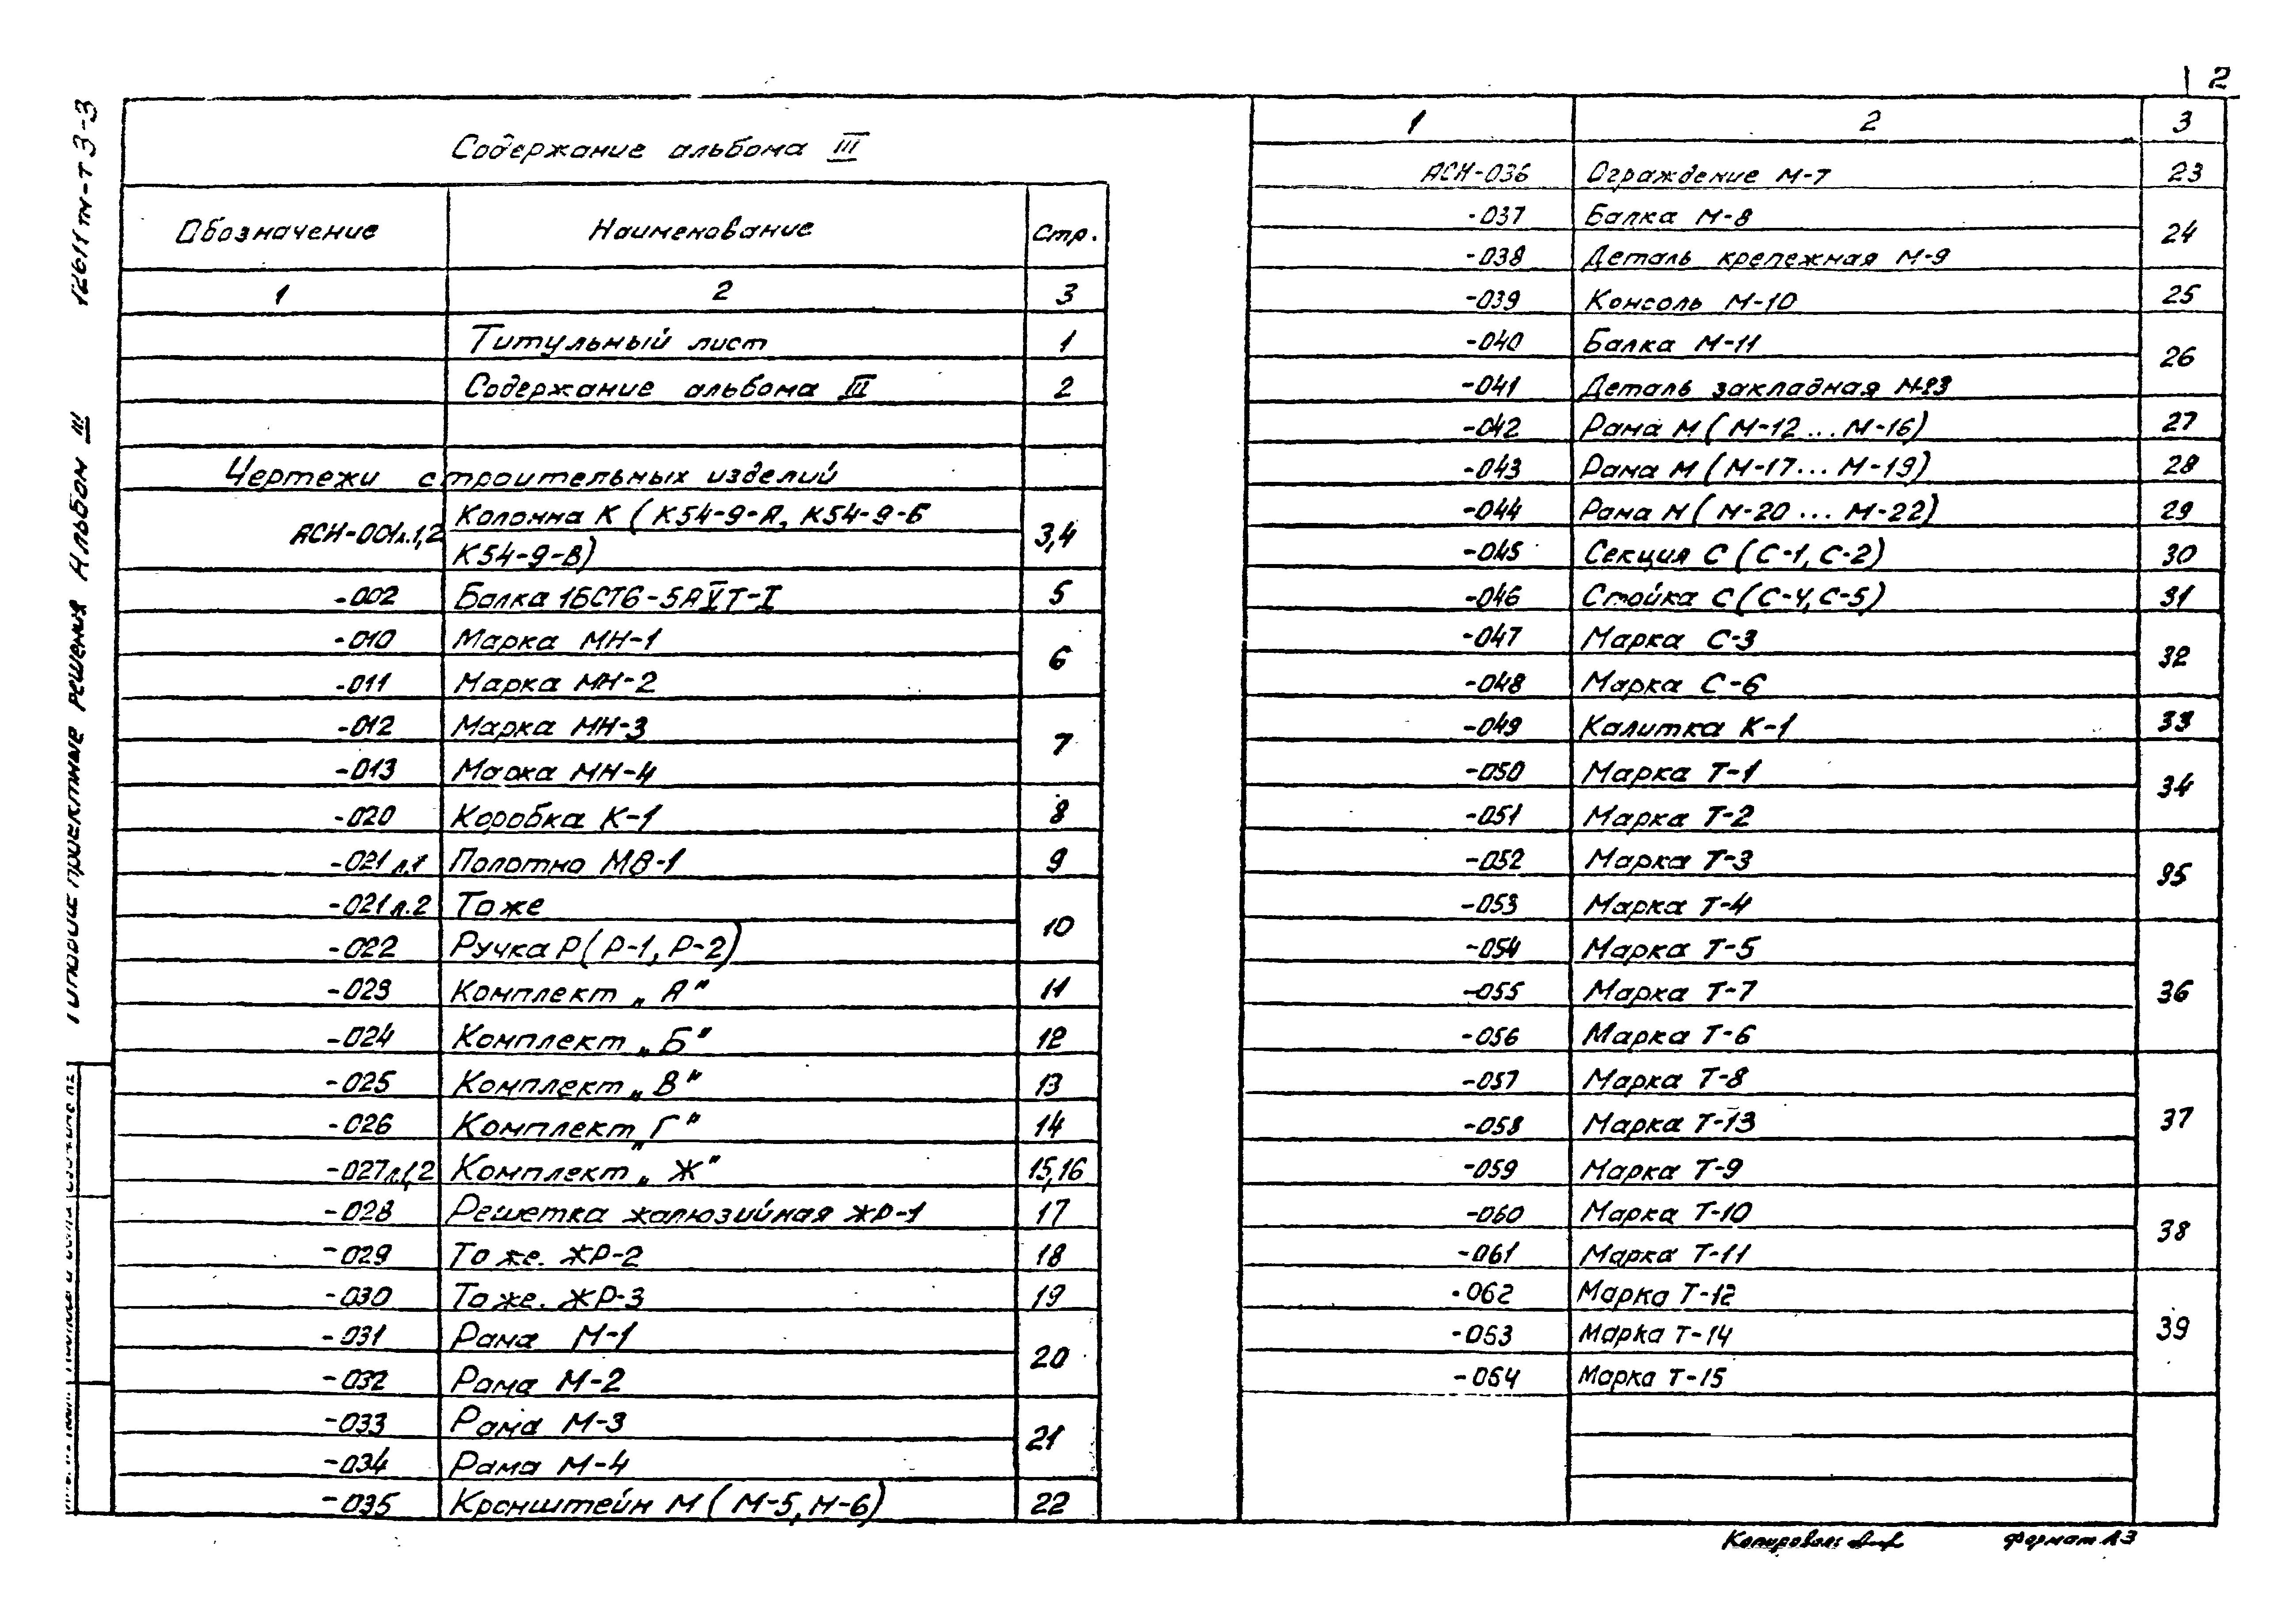 2
12611тм-т3-3
Типовые проектные решения Альбом III
Содержание альбома III
Обозначение Наименование Стр.
1 2 3
Титульный лист 1
Содержание альбома III 2
Чертежи строительных изделий
АСИ-001л.1,2 Колонна К (К54-9-А, К54-9-Б 3,4
К54-9-В)
-002 Балка 1БСТ6-5АVТ-I 5
-010 Марка МН-1 6
-011 Марка МН-2
-012 Марка МН-3 7
-013 Марка МН-4
-020 Коробка К-1 8
-021 л.1 Полотно МВ-1 9
-021 л.2 То же 10
-022 Ручка Р(Р-1, Р-2)
-023 Комплект „А" 11
-024 Комплект „Б" 12
-025 Комплект „В" 13
-026 Комплект „Г" 14
-027л.1,2 Комплект „Ж" 15,16
-028 Решетка жалюзийная ЖР-1 17
-029 То же. ЖР-2 18
-030 То же. ЖР-3 19
-031 Рама М-1 20
-032 Рама М-2
-033 Рама М-3 21
-034 Рама М-4
-035 Кронштейн М (М-5, М-6) 22
1 2 3
АСИ-036 Ограждение М-7 23
-037 Балка М-8 24
-038 Деталь крепежная М-9
-039 Консоль М-10 25
-040 Балка М-11 26
-041 Деталь закладная М-23
-042 Рама М (М-12...М-16) 27
-043 Рама М (М-17...М-19) 28
-044 Рама М (М-20...М-22) 29
-045 Секция С (С-1, С-2) 30
-046 Стойка С (С-4, С-5) 31
-047 Марка С-3 32
-048 Марка С-6
-049 Калитка К-1 33
-050 Марка Т-1 34
-051 Марка Т-2
-052 Марка Т-3 35
-053 Марка Т-4
-054 Марка Т-5 36
-055 Марка Т-7
-056 Марка Т-6
-057 Марка Т-8 37
-058 Марка Т-13
-059 Марка Т-9
-060 Марка Т-10 38
-061 Марка Т-11
-062 Марка Т-12 39
-063 Марка Т-14
-064 Марка Т-15
Копировал: Формат А3